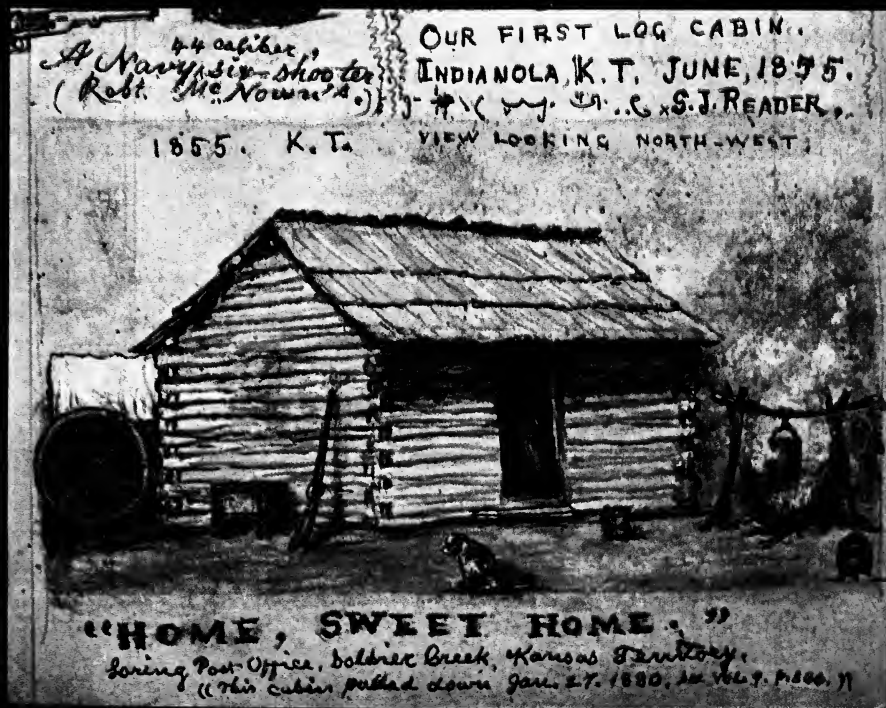 44 caliber,
A Navy six-shooter
(Robt. McNown's.)
OUR FIRST LOG CABIN.
INDIANOLA, K.T. JUNE, 1855.
S.J. READER.
1855. K.T.
VIEW LOOKING NORTH-WEST.
"HOME, SWEET HOME."
Loring Post-Office, Soldier Creek, Kansas Territory.
((This cabin pulled down Jan. 27. 1880, see Vol. 9. P.